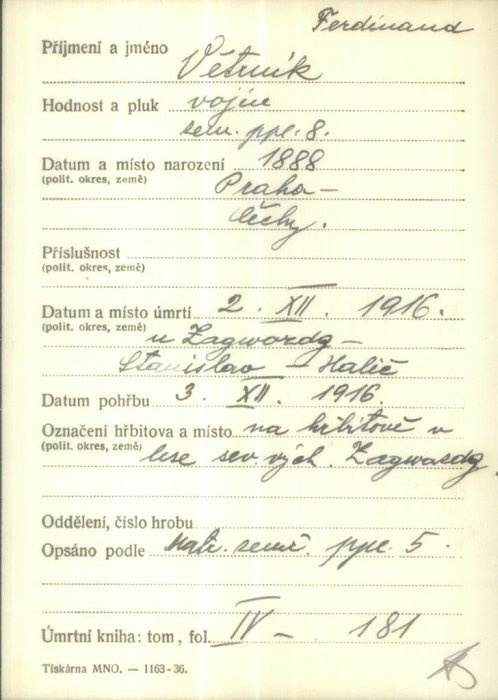 Ferdinand
Příjmení a jméno Větrník
Hodnost a pluk vojín
zem. ppl. 8.
Datum a místo narození 1888
(polit. okres, země) Praha –
Čechy.
Příslušnost
(polit. okres, země)
Datum a místo úmrtí 2. XII. 1916.
(polit. okres, země) u Zagwozdg –
Stanislav – Halič
Datum pohřbu 3. XII. 1916.
Označení hřbitova a místo na hřbitově v
(polit. okres, země) lese sev. vých. Zagwozdg
Oddělení, číslo hrobu
Opsáno podle Matr. zeměř. ppl. 5.
Úmrtní kniha: tom, fol. IV – 181
Tiskárna MNO. — 1163-36.